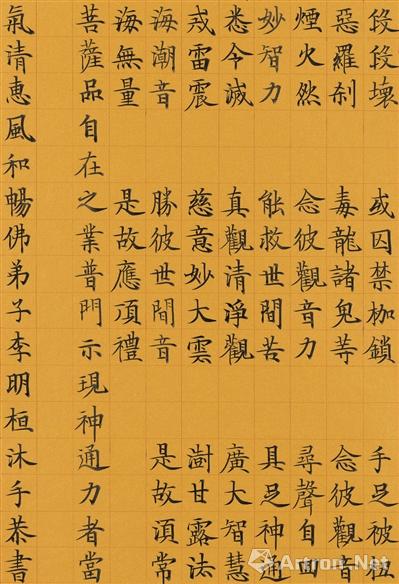 段段壞 或囚禁枷鎖 手足被杻
惡羅刹 毒龍諸鬼等 念彼觀音
煙火然 念彼觀音力 尋聲自回
妙智力 能救世間苦 具足神通
悉令滅 真觀清淨觀 廣大智慧
戒雷震 慈意妙大雲 澍甘露法
海潮音 勝彼世間音 是故須常
海無量 是故應頂禮
菩薩品自在之業普門示現神通力者當
氣清惠風和暢佛弟子李明桓沐手恭書
Artron.Net